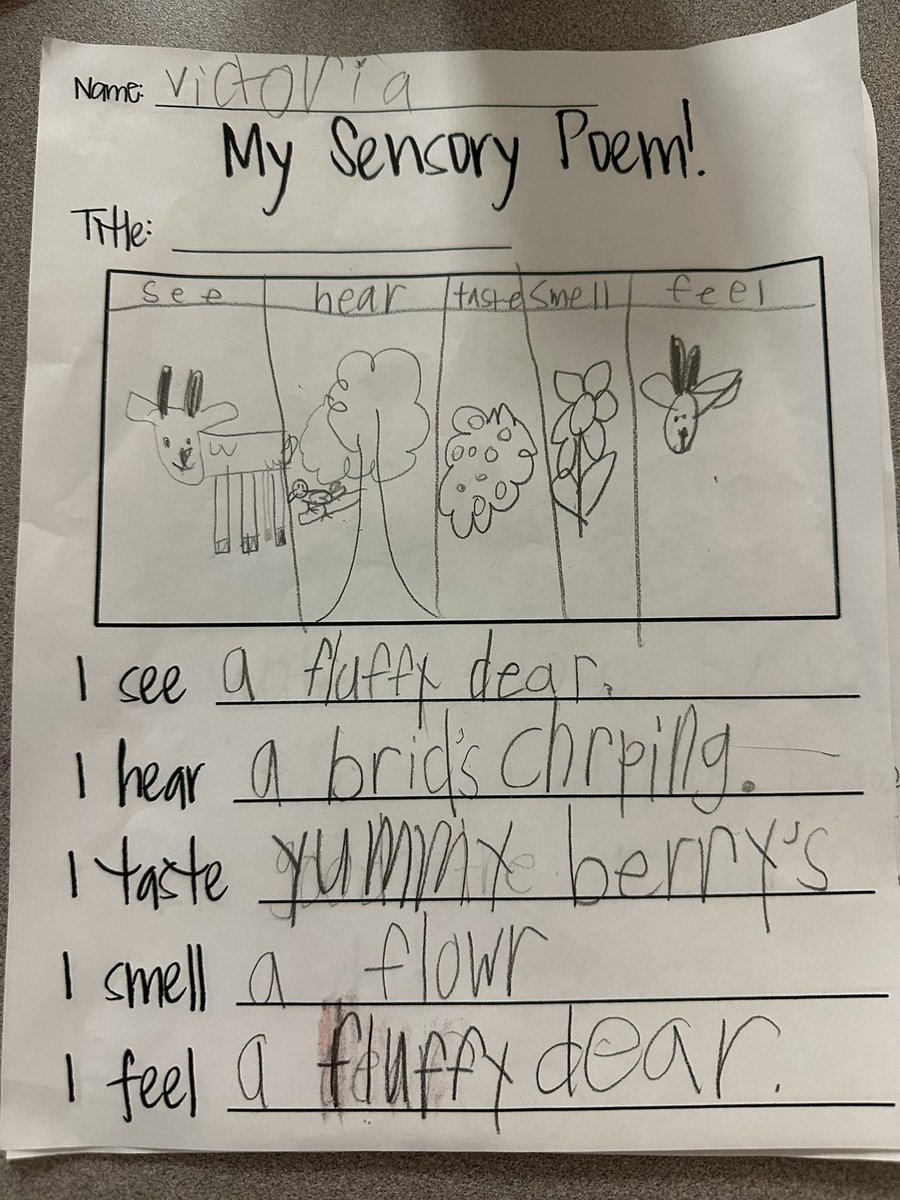 Name: Victoria
My Sensory Poem!
Title:
see hear taste smell feel
I see a fluffy dear.
I hear a brid's chrping.
I taste yummy berry's
I smell a flowr
I feel a fluffy dear.